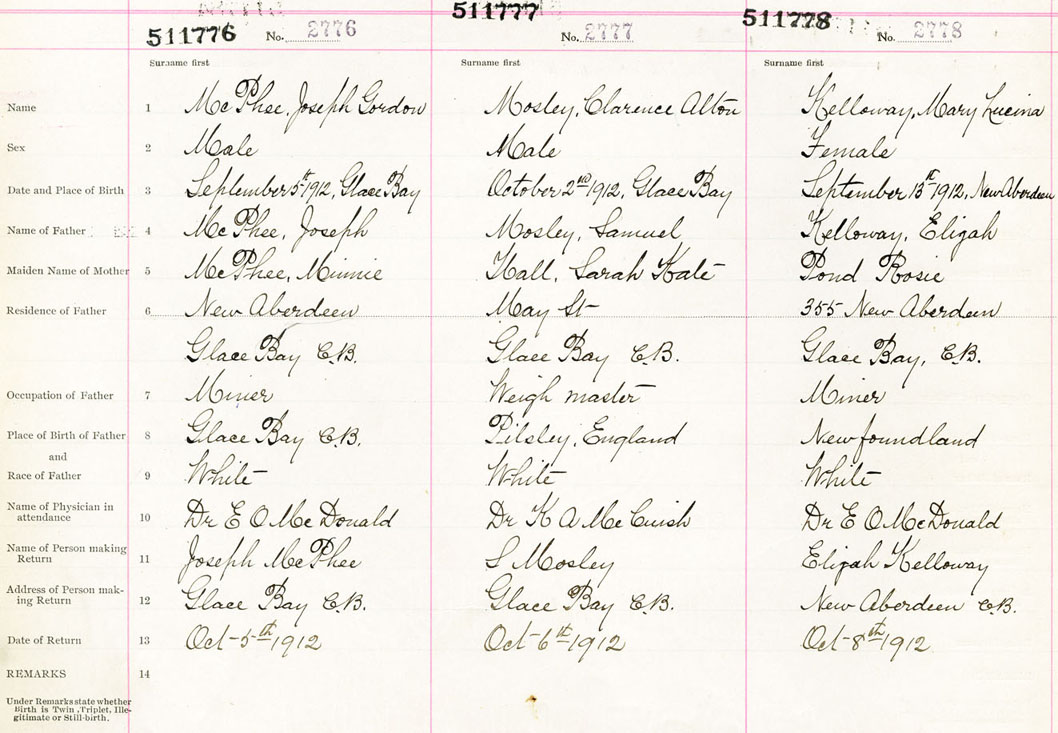 511776 No. 2776 511777 No. 2777 511778 No. 2778
Surname first Surname first Surname first
Name 1 McPhee, Joseph Gordon Mosley, Clarence Alton Kelloway, Mary Lucina
Sex 2 Male Male Female
Date and Place of Birth 3 September 5th 1912, Glace Bay October 2nd 1912, Glace Bay September 13th 1912, New Aberdeen
Name of Father 4 McPhee, Joseph Mosley, Samuel Kelloway, Elijah
Maiden Name of Mother 5 McPhee, Minnie Hall, Sarah Kate Pond Rosie
Residence of Father 6 New Aberdeen May St 355 New Aberdeen
Glace Bay C.B. Glace Bay C.B. Glace Bay, C.B.
Occupation of Father 7 Miner Weigh master Miner
Place of Birth of Father 8 Glace Bay C.B. Pilsley, England Newfoundland
and
Race of Father 9 White White White
Name of Physician in
attendance 10 Dr E O McDonald Dr K A McCuish Dr E O McDonald
Name of Person making
Return 11 Joseph McPhee S Mosley Elijah Kelloway
Address of Person mak-
ing Return 12 Glace Bay C.B. Glace Bay C.B. New Aberdeen C.B.
Date of Return 13 Oct-5th 1912 Oct-6th 1912 Oct-8th 1912
REMARKS 14
Under Remarks state whether
Birth is Twin, Triplet, Ille-
gitimate or Still-birth.